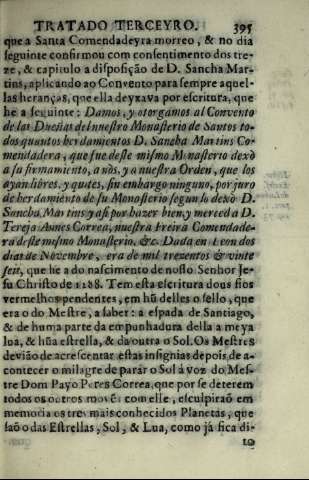 TRATADO TERCEYRO. 395
que a Santa Comendadeyra morreo, & no dia
seguinte confirmou com consentimento dos tre-
ze, & capitulo a disposição de D. Sancha Mar-
tins, aplicando ao Convento para sempre aquel-
las heranças, que ella deyxava por escritura, que
he a seguinte: Damos, y otorgamos al Convento
de las Dueñas del nuestro Monasterio de Santos to-
dos quantos herdamientos D. Sancha Martins Co-
mendadera, que fue deste mismo Monasterio dexò
a su finamiento, a nòs, y a nuestra Orden, que los
ayan libres, y quites, sin embargo ninguno, por juro
de herdamiento de su Monasterio segun lo dexò D.
Sancha Martins, y asi por hazer bien, y merced a D.
Tereja Annes Correa, nuestra Freira Comendade-
ra deste mismo Monasterio, &c. Dada en Leon dos
dias de Novembre, era de mil trezentos & vinte
seis, que he a do nascimento de nosso Senhor Je-
su Christo de 1288. Tem esta escritura dous fios
vermelhos pendentes, em hũ delles o sello, que
era o do Mestre, a saber: a espada de Santiago,
& de huma parte da empunhadura della a meya
lua, & hũa estrella, & da outra o Sol. Os Mestres
devião de acrescentar estas insignias depois de a-
contecer o milagre de parar o Sol á voz do Mes-
tre Dom Payo Peres Correa, que por se deterem
todos os outros movẽs com elle, esculpiraõ em
memoria os tres mais conhecidos Planetas, que
saõ o das Estrellas, Sol, & Lua, como já fica di-
to